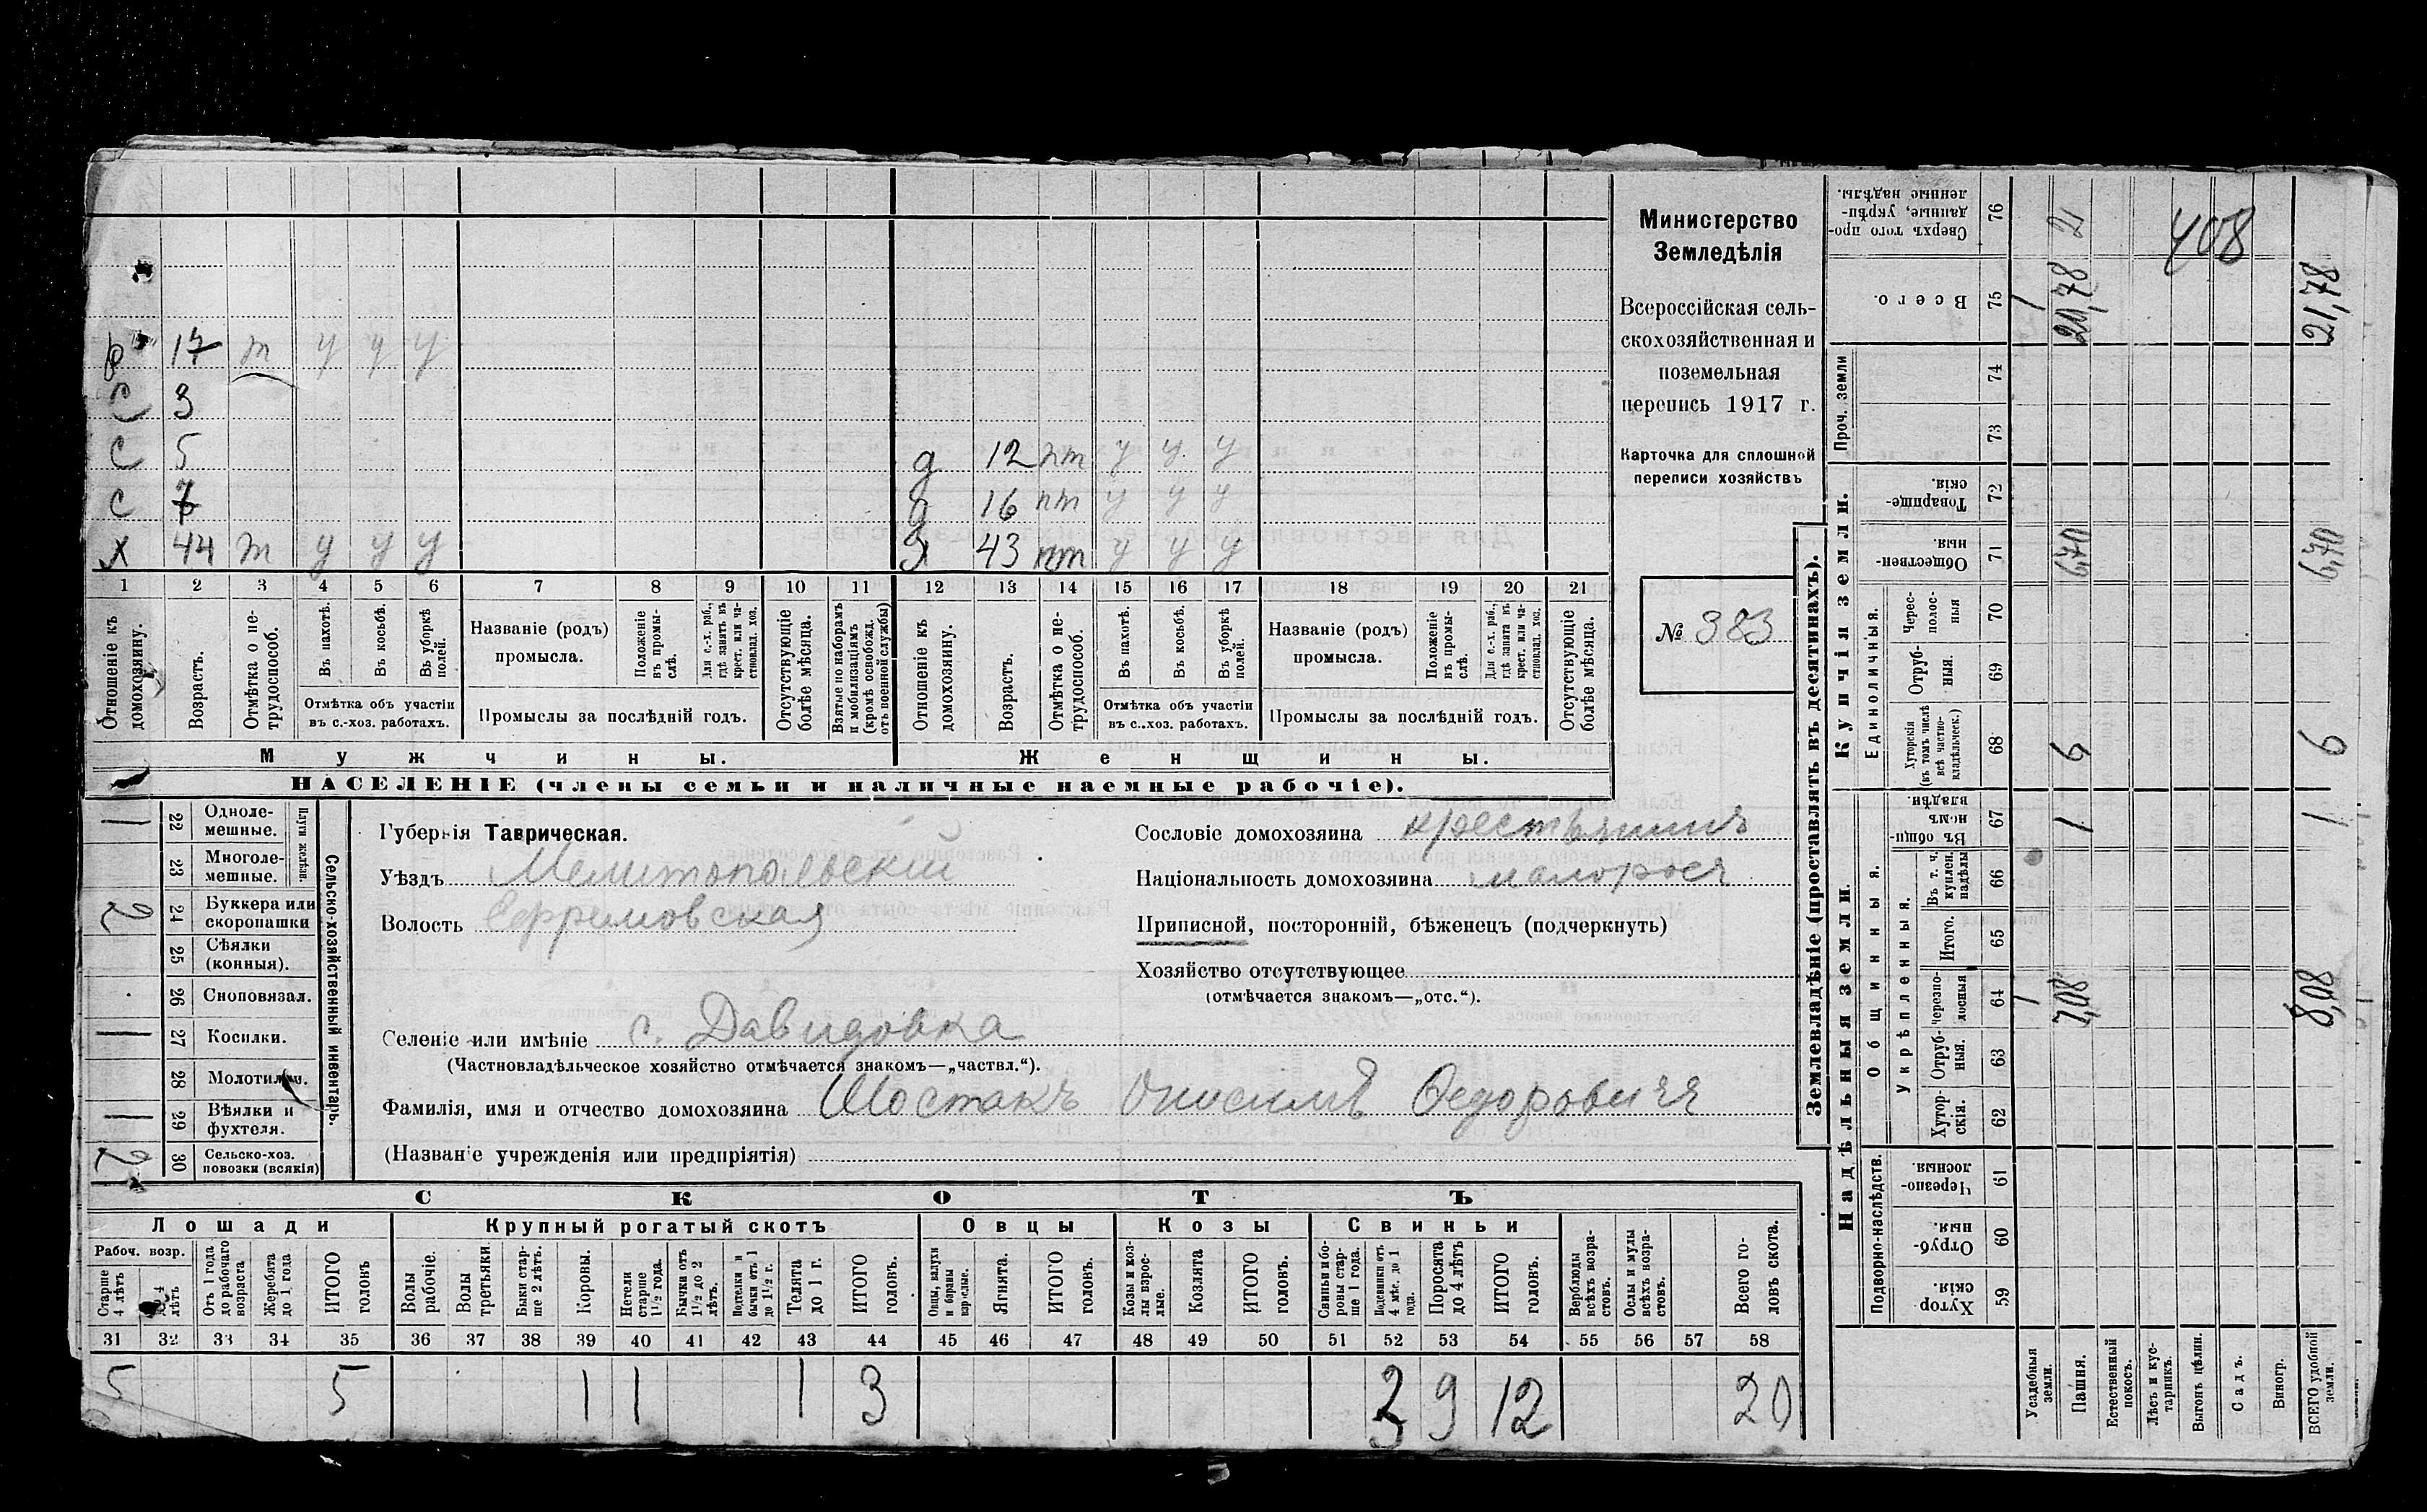 Министерство
Земледѣлія
Всероссійская сель-
скохозяйственная и
поземельная
перепись 1917 г.
Карточка для сплошной
переписи хозяйствъ
№ 383
р 17 т у у у
С 3
С 5
д 12 пт у у у
С 7
д 16 пт у у у
х 44 т у у у
43 пт у у у
1 2 3 4 5 6 7 8 9 10 11 12 13 14 15 16 17 18 19 20 21
Отношеніе къ домохозяину.
Возрастъ.
Отмѣтка о не-
трудоспособ.
Въ пахотѣ.
Въ косьбѣ.
Въ уборкѣ полей.
Отмѣтка объ участіи
въ с.-хоз. работахъ.
Названіе (родъ)
промысла.
Положеніе
въ промы-
слѣ.
Для с.-х. раб.,
гдѣ занятъ въ
крест. или ча-
стновлад. хоз.
Промыслы за послѣдній годъ.
Отсутствующіе
болѣе мѣсяца.
Взятые по наборамъ
и мобилизаціямъ
(кромѣ освобожд.
отъ военной службы)
Отношеніе къ
домохозяину.
Возрастъ.
Отмѣтка о не-
трудоспособ.
Въ пахотѣ.
Въ косьбѣ.
Въ уборкѣ
полей.
Отмѣтка объ участіи
въ с.-хоз. работахъ.
Названіе (родъ)
промысла.
Положеніе
въ промы-
слѣ.
Для с.-х. раб.,
гдѣ занята въ
крест. или ча-
стновлад. хоз.
Промыслы за послѣдній годъ.
Отсутствующіе
болѣе мѣсяца.
Мужчины.
Женщины.
НАСЕЛЕНІЕ (члены семьи и наличные наемные рабочіе).
Сельско-хозяйственный инвентарь.
Плуги желѣз.
1 22 Одноле-
мешные.
23 Многоле-
мешные.
2 24 Буккера или
скоропашки
25 Сѣялки
(конныя).
26 Сноповязал.
1 27 Косилки.
28 Молотилки.
1 29 Вѣялки и
фухтеля.
2 30 Сельско-хоз.
повозки (всякія)
Губернія Таврическая.
Уѣздъ Мелитопольскій
Волость Ефремовская
Сословіе домохозяина крестьянинъ
Національность домохозяина малоросъ
Приписной, посторонній, бѣженецъ (подчеркнуть)
Хозяйство отсутствующее
(отмѣчается знакомъ—„отс.“).
Селеніе или имѣніе с. Давидовка
(Частновладѣльческое хозяйство отмѣчается знакомъ—„частвл.“).
Фамилія, имя и отчество домохозяина Шостакъ Онисимъ Федоровичъ
(Названіе учрежденія или предпріятія)
СКОТЪ
Лошади
Крупный рогатый скотъ
Овцы
Козы
Свиньи
Рабоч. возр.
Старше
4 лѣтъ
До 4
лѣтъ
Отъ 1 года
до рабочаго
возраста
Жеребята
до 1 года
ИТОГО
головъ
Волы
рабочіе.
Волы
третьяки.
Быки стар-
ше 2 лѣтъ.
Коровы.
Нетели
старше
1½ года.
Бычки отъ
1½ до 2
лѣтъ.
Подтелки и
бычки отъ 1
до 1½ г.
Телята
до 1 г.
ИТОГО
головъ.
Овцы, валухи
и бараны
взрослые.
Ягнята.
ИТОГО
головъ.
Козы и коз-
лы взрос-
лые.
Козлята
ИТОГО
головъ.
Свиньи и бо-
ровы стар-
ше 1 года.
Подсвинки отъ
4 мѣс. до 1
года.
Поросята
до 4 лѣтъ
ИТОГО
головъ.
Верблюды
всѣхъ возра-
стовъ.
Ослы и мулы
всѣхъ возра-
стовъ.
Всего го-
ловъ скота.
31 32 33 34 35 36 37 38 39 40 41 42 43 44 45 46 47 48 49 50 51 52 53 54 55 56 57 58
5 5 1 1 1 3 3 9 12 20
Землевладѣніе (проставлять въ десятинахъ).
Сверхъ того про-
данные, укрѣп-
ленные надѣлы.
76
408
Всего.
75 1 20,78 21,78
Купчія земли.
Проч. земли
74
73
Товарище-
скія.
72
Обществен-
ныя.
71 6,70 6,70
Единоличныя.
Черес-
полос-
ныя
70
Отруб-
ныя.
69
Хуторскія
(въ томъ числѣ
всѣ частно-
владѣльческ.)
68 6 6
Надѣльныя земли.
Общинныя.
Въ общин-
номъ
владѣн.
67 1 1
Укрѣпленныя.
Въ т. ч.
куплен.
надѣлы
66
Итого.
65
Черезпо-
лосныя
64 1 7,08 8,08
Отруб-
ныя.
63
Хутор-
скія.
62
Подворно-наслѣдств.
Черезпо-
лосныя
61
Отруб-
ныя.
60
Хутор
скія.
59
Усадебныя
земли.
Пашня.
Естественный
покосъ.
Лѣсъ и кус-
тарникъ.
Выгонъ цѣлин.
Садъ.
Виногр.
ВСЕГО удобной
земли.